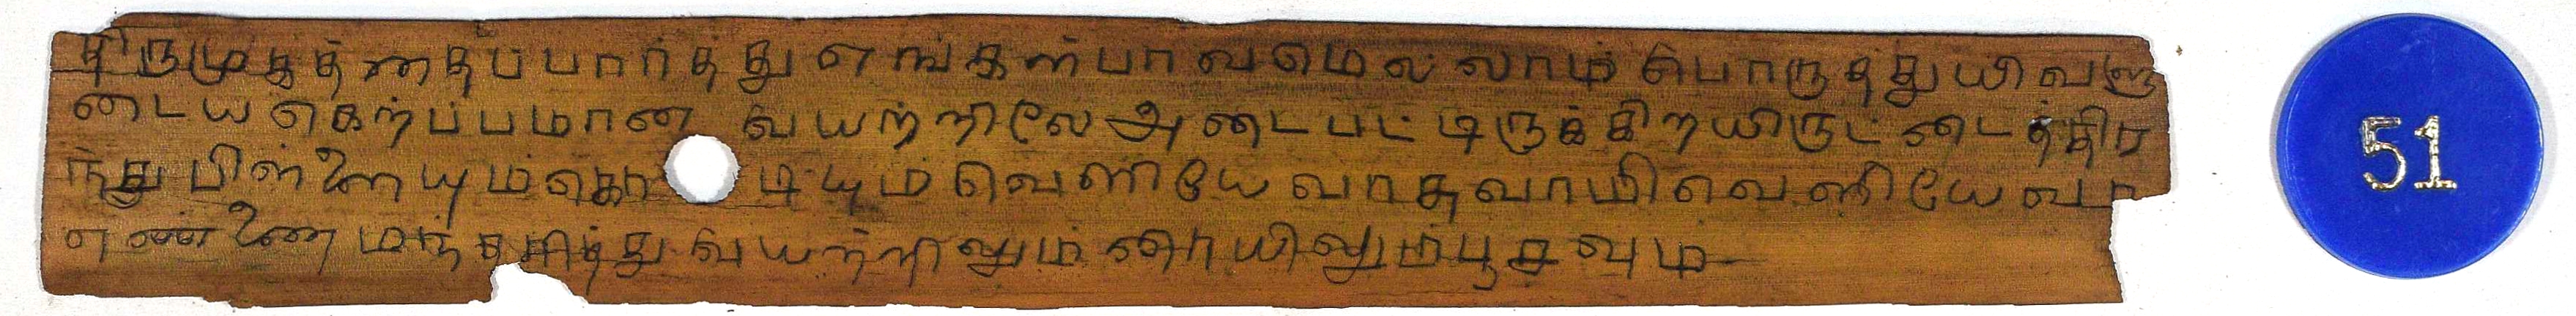 திருமுகத்தைப்பார்த்து எங்கள்பாவமெல்லாம் பொருத்துயிவளு
டைய கெற்ப்பமான வயற்றிலே அடைபட்டிருக்கிறயிருட்டைத்திற
ந்து பிள்ளையும்கொடியும் வெளியே வாசுவாமி வெளியே வா
எண்ணை மந்தசித்து வயற்றிலும் வாயிலும்பூசவும்
51